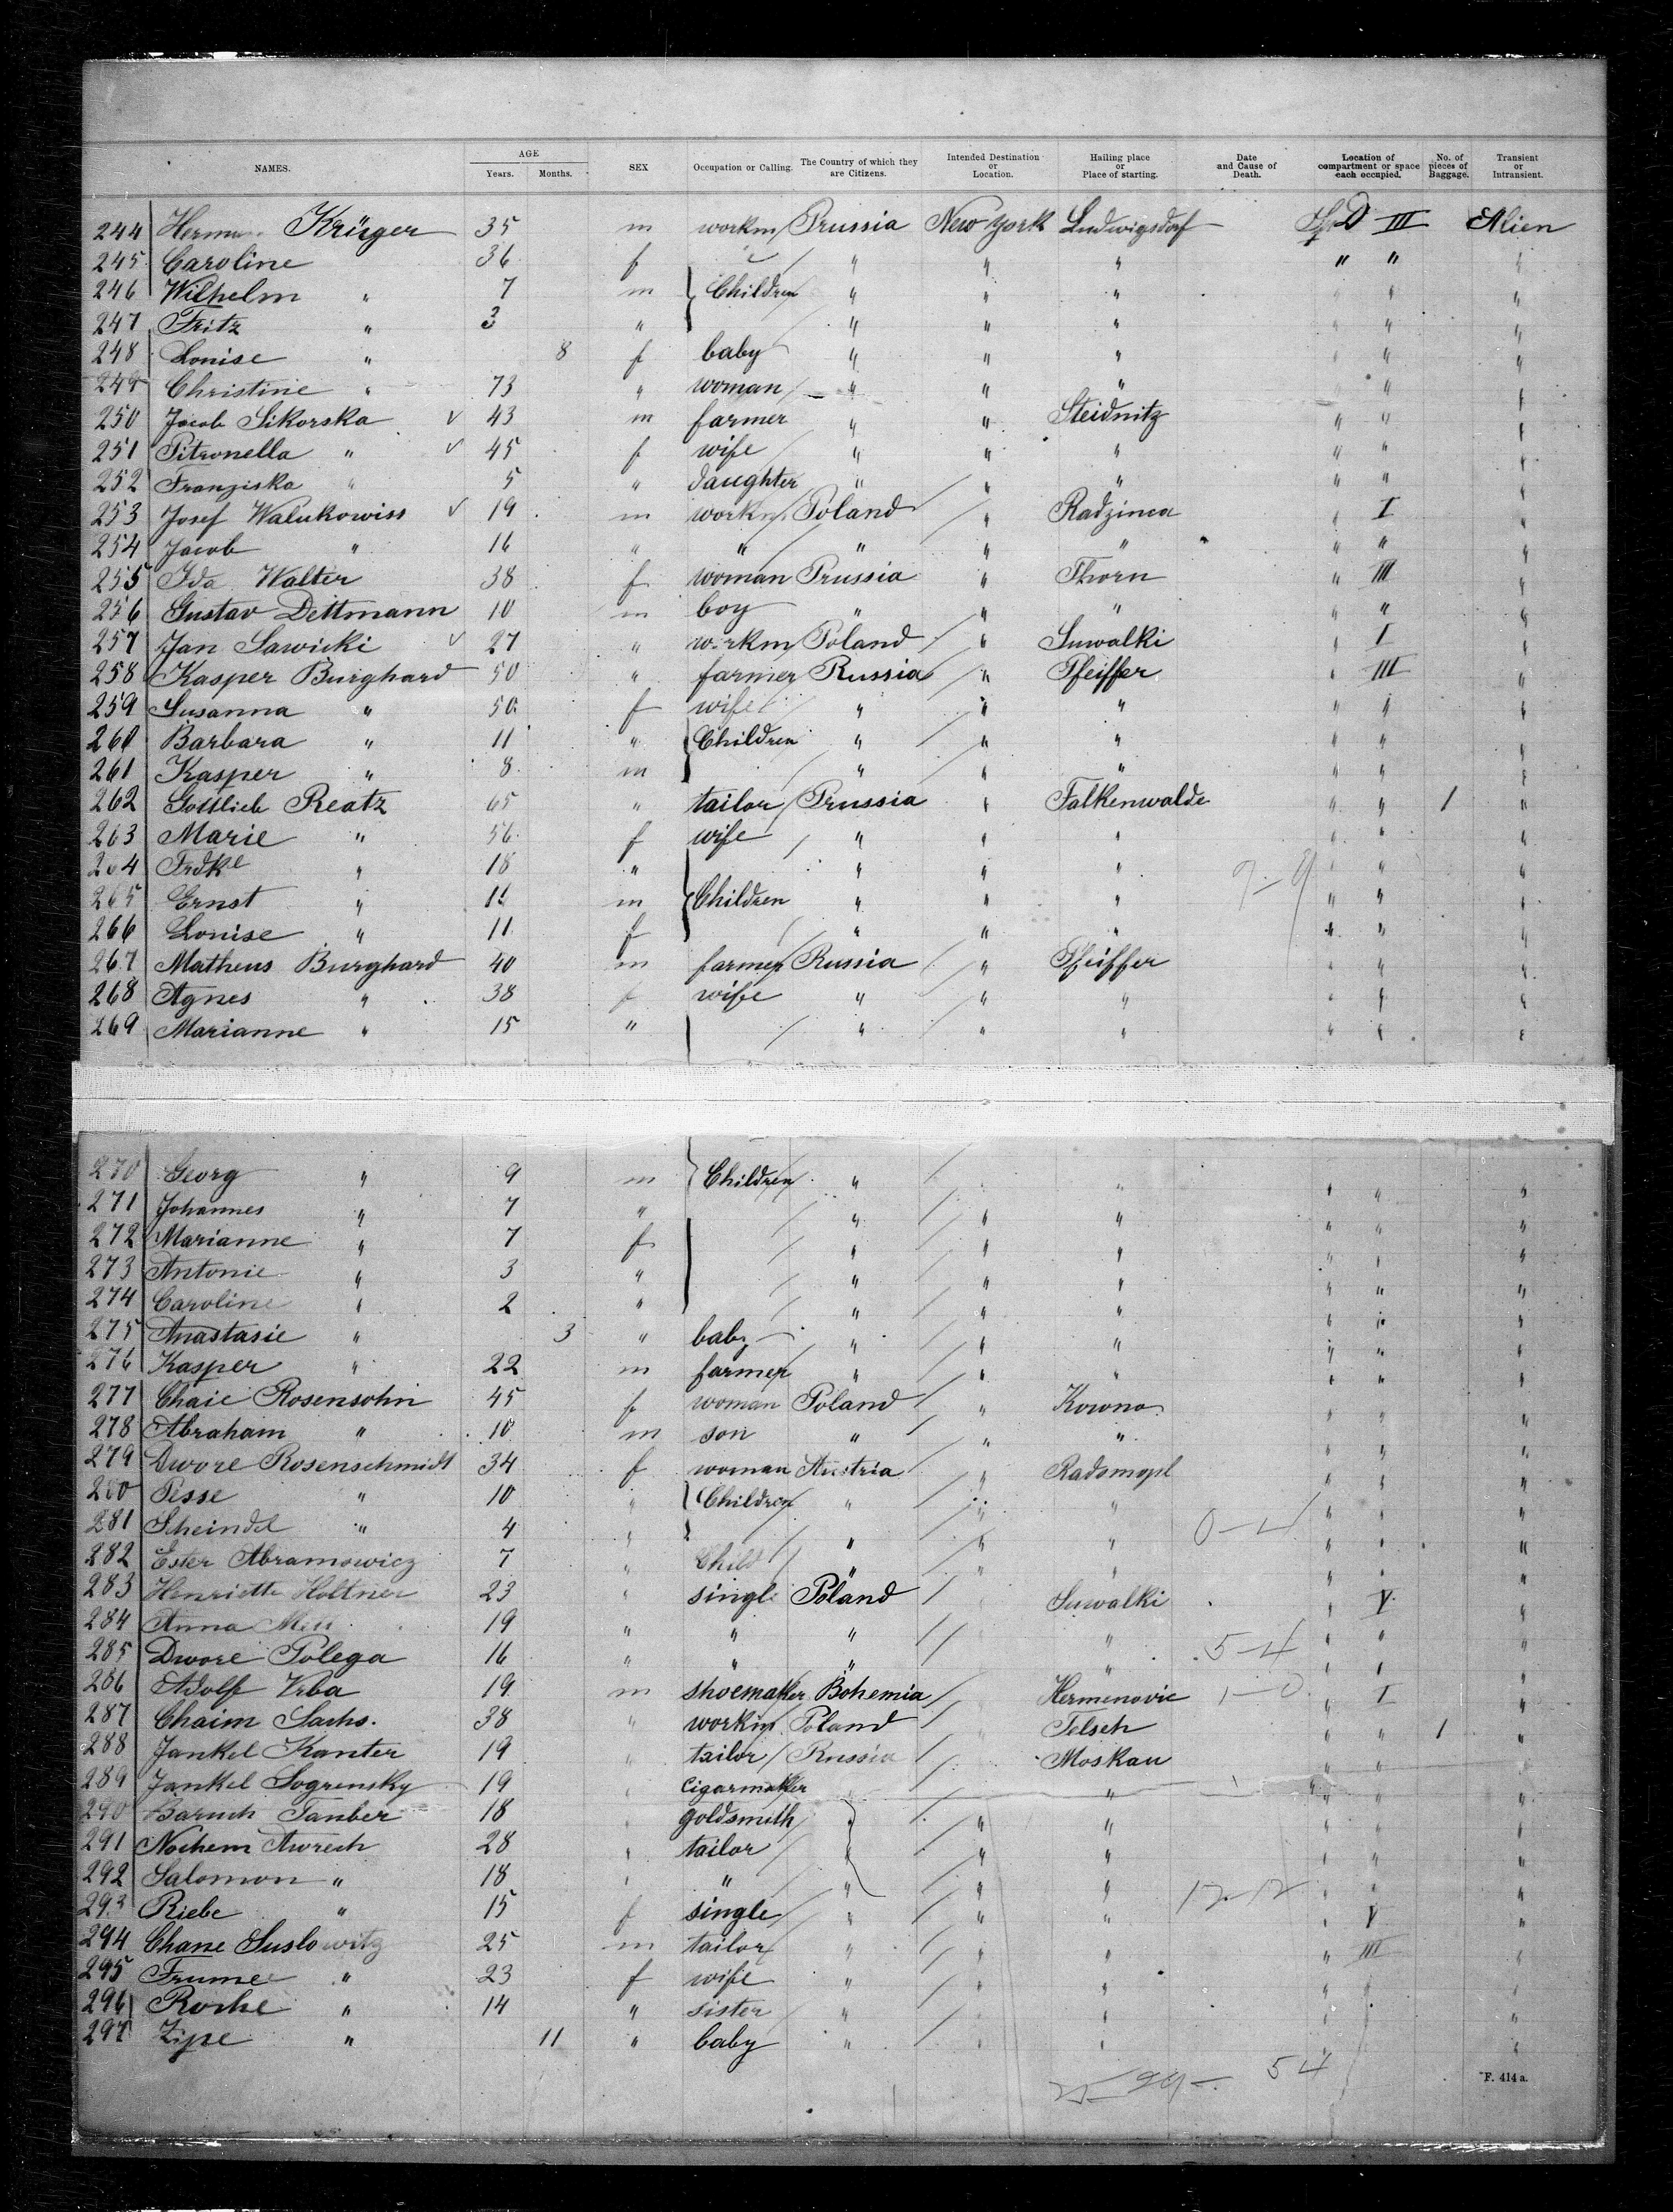 NAMES. AGE Years. Months. SEX Occupation or Calling. The Country of which they are Citizens. Intended Destination or Location. Hailing place or Place of starting. Date and Cause of Death. Location of compartment or space each occupied. No. of pieces of Baggage. Transient or Intransient.
244 Herman Krüger 35 m workm Prussia New York Ludwigsdorf III Alien
245 Caroline 36 f " " " " " "
246 Wilhelm " 7 m Children " " " " " "
247 Fritz " 3 " " " " " " "
248 Louise " 8 f baby " " " " "
249 Christine " 73 " woman " " " " "
250 Jacob Sikorska v 43 m farmer " " Steidnitz " " "
251 Pitronella " v 45 f wife " " " " " "
252 Franziska " 5 " daughter " " " " " "
253 Josef Walukowiss v 19 m workm Poland " Radzinca " I "
254 Jacob " 16 " " " " " " " "
255 Ida Walter 38 f woman Prussia " Thorn " III "
256 Gustav Dettmann 10 m boy " " " " " "
257 Jan Sawicki v 27 " workm Poland " Suwalki " I "
258 Kasper Burghard 50 " farmer Russia " Pfeiffer " III "
259 Susanna " 50 f wife " " " " " "
260 Barbara " 11 " Children " " " " " "
261 Kasper " 8 m " " " " "
262 Gottlieb Reatz 65 " tailor Prussia " Falkenwalde " " 1 "
263 Marie " 56 f wife " " " " " "
264 Frdke " 18 " " " " " " "
265 Ernst " m Children " " " " " "
266 Louise " 11 f " " " " " "
267 Matheus Burghard 40 m farmer Russia " Pfeiffer " " "
268 Agnes " 38 f wife " " " " " "
269 Marianne " 15 " " " " " " "
270 Georg " 9 m Children " " " " "
271 Johannes " 7 " " " " " " "
272 Marianne " 7 f " " " " " "
273 Antonie " 3 " " " " " " "
274 Caroline " 2 " " " " " " "
275 Anastasie " 3 " baby " " " " " "
276 Kasper " 22 m farmer " " " " " "
277 Chaie Rosensohn 45 f woman Poland " Kowno " " "
278 Abraham " 10 m son " " " " " "
279 Dwore Rosenschmidt 34 f woman Austria " Radomopl " " "
280 Pesse " 10 " Children " " " " " "
281 Sheindel " 4 " " " " " " "
282 Ester Abramowicz 7 " Child " " " " " "
283 Henriette Holtner 23 " single Poland Suwalki " V "
284 Anna 19 " " " " " " "
285 Dwore Polega 16 " " " " 5-4 " " "
286 Adolf Vrba 19 m shoemaker Bohemia Hermenovic " I "
287 Chaim Sachs. 38 " workm Poland Telsch " " 1 "
288 Jankel Kanter 19 " tailor Russia Moskau " " "
289 Jankel Sogrensky 19 " cigarmaker " " " " "
290 Baruch Tanber 18 " goldsmith " " " " " "
291 Nochem Awrech 28 " tailor " " " " " "
292 Salomon " 18 " " " " " " " "
293 Riebe " 15 f single " " " " V "
294 Chane Suslowitz 25 m tailor " " " " III "
295 Frume " 23 f wife " " " " " "
296 Roche " 14 " sister " " " " " "
297 Zipe " 11 " baby " " " " " "
54
F. 414 a.